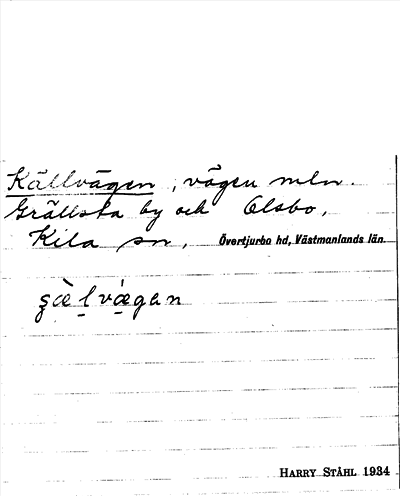 Källvägen, vägen mln.
Grällsta by och Olsbo,
Kila sn, Övertjurbo hd, Västmanlands län.
ȿæ̀l vǽgən
HARRY STÅHL 1934